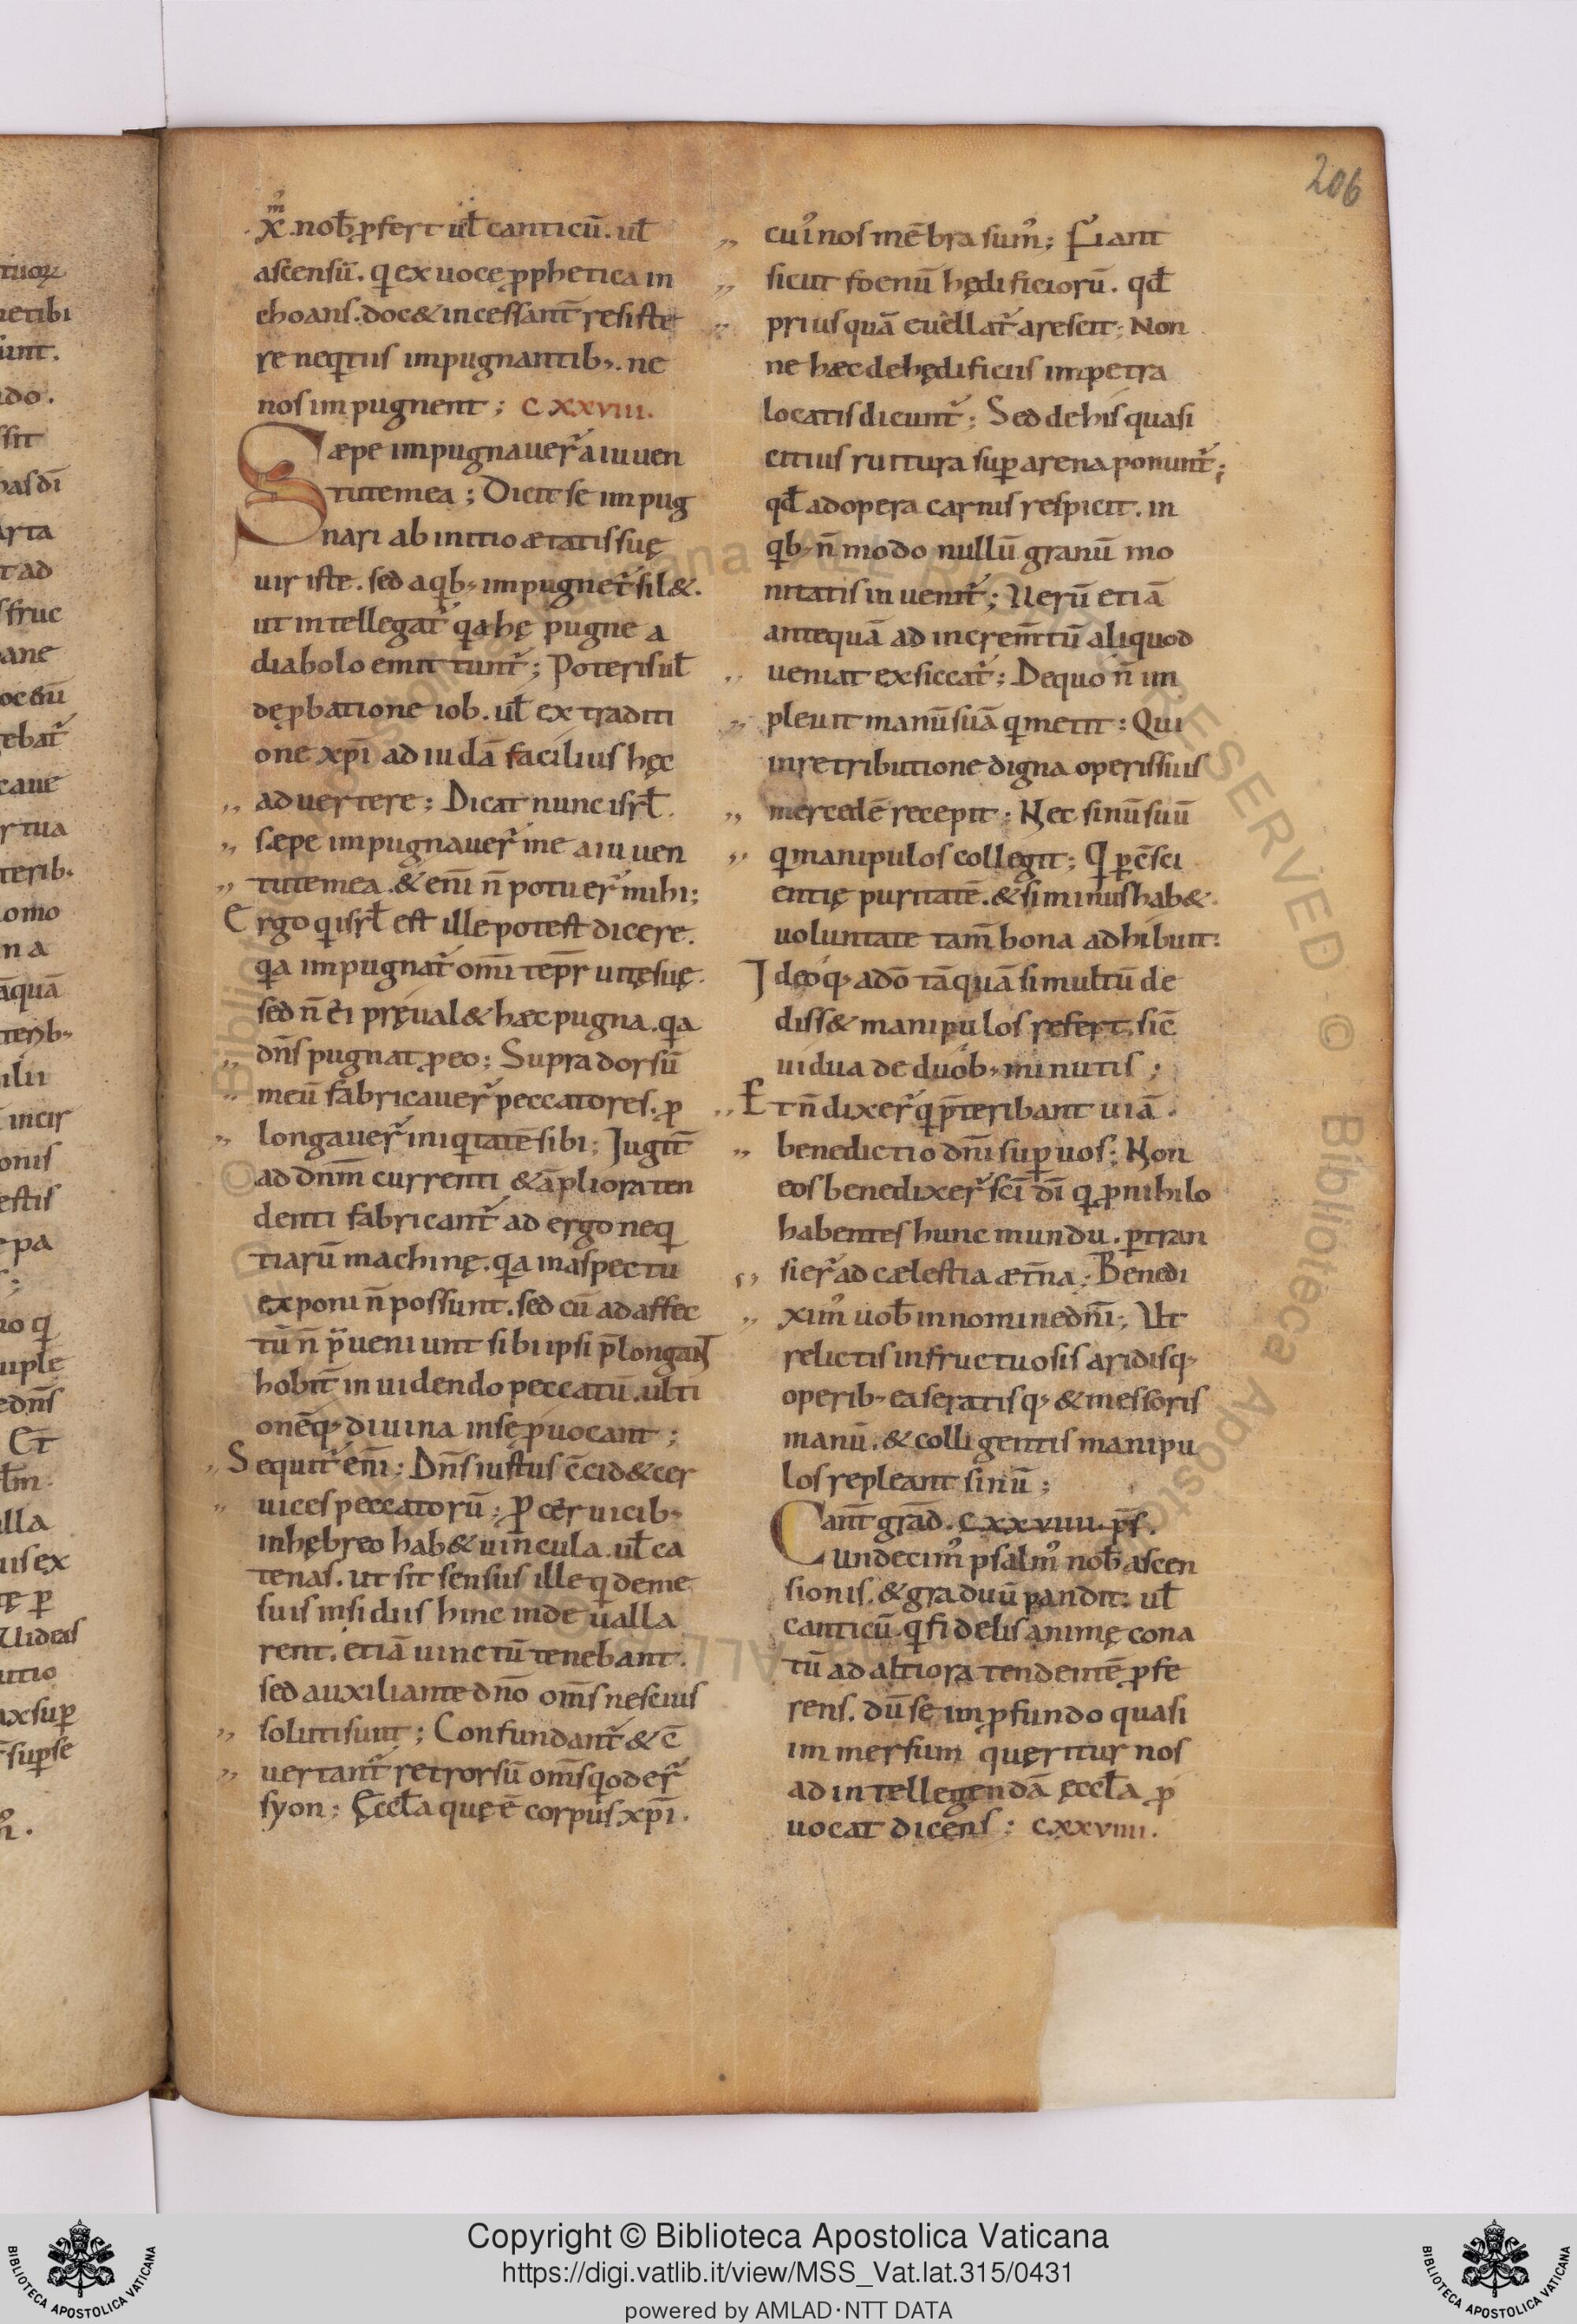 206
x̄. nob̄ p̄fert ul̄ canticū. ul̄
ascensū. q ex uoce pphetica in
choans. doc& incessant̄ resiste
re neqtiis impugnantib;. ne
nos impugnent; CXXVIII.
Sæpe impugnauer̄ a iuuen
tute mea; Dicit se impug
nari ab initio ætatis suę
uir iste. sed a qb; impugnet̄ sil&.
ut intellegat̄ qa hę pugne a
diabolo emittunt̄; Poteris ul̄
de pbatione iob. ul̄ ex traditi
one xp̄i ad iudā facilius hęc
,, aduertere; Dicat nunc isrl̄.
,, sæpe impugnauer̄ me a iuuen
,, tute mea. & eni n̄ potuer̄ mihi;
Ergo q isrl̄ est ille potest dicere.
qa impugnat̄ om̄i tepr̄ uitę suę.
sed n̄ ei pręual& hæc pugna. qa
,, dn̄s pugnat p eo; Supra dorsū
,, meū fabricauer̄ peccatores. p
,, longauer̄ iniqtatē sibi; Jugit̄
ad dn̄m currenti & āpliora ten
denti fabricant̄ ad ergo neq
tiarū machinę. qa in aspectu
exponi n̄ possunt. sed cū ad affec
tū n̄ pueniunt sibi ipsi p̄longan̄t
hobit̄ inuidendo peccatū. ulti
onēq; diuina in se puocant;
,, Sequit̄ eni; Dn̄s iustus c̄cid& cer
,, uices peccatorū; P ceruicib;
in hębreo hab& uincula. ul̄ ca
tenas. ut sit sensus ille q deme
suis insidiis hinc inde ualla
rent. etiā uinctū tenebant.
sed auxiliante dn̄o om̄s nescius
,, soluti sunt; Confundant̄ & c̄
,, uertant̄ retrorsū om̄s q oder̄
syon; Ęccl̄a quę ē corpus xp̄i.
,, cui nos mēbra sum; Fiant
,, sicut foenū hędificiorū. qd̄
,, priusquā euellat̄ arescit; Non
ne hæc de hędificiis in petra
locatis dicunt̄; Sed de his quasi
citius ruitura sup arena ponunt̄;
qd̄ ad opera carnis respicit. in
qb; n̄ modo nullū granū mo
nitatis inuenit̄; Uerū etiā
antequā ad increm̄tū aliquod
,, ueniat exsiccat̄; De quo n̄ im
,, pleuit manū suā q metit; Qui
in retributione digna operis sui
,, mercedē recepit; Nec sinū suū
,, q manipulos collegit; Q p c̄sci
entię puritatē. & si minus hab&.
uoluntate tam̄ bona adhibuit;
Ideoq; a dō tāquā si multū de
diss& manipulos refert. sic̄
uidua de duob; minutis;
,, Et n̄ dixer̄ q p̄teribant uiā.
,, benedictio dn̄i sup uos; Non
eos benedixer̄ sc̄i dī q p nihilo
habentes hunc mundu. ptran
,, sier̄ ad cælestia æt̄na; Benedi
,, xim uob̄ in nomine dn̄i; Ut
relictis infructuosis aridisq;
operib; ea seratisq; & messoris
manū. & colligentis manipu
los repleant sinū;
Cant̄ grad̄. CXXVIIII. ps̄.
Undecim psalm nob̄ ascen
sionis. & graduū pandit. ul̄
canticū. q fidelis animę cona
tū ad altiora tendentē pfe
rens. dū se in pfundo quasi
immersum quęritur nos
ad intellegendā ęccl̄a p
uocat dicens; CXXVIIII.
Copyright © Biblioteca Apostolica Vaticana
https://digi.vatlib.it/view/MSS_Vat.lat.315/0431
powered by AMLAD·NTT DATA
BIBLIOTECA APOSTOLICA VATICANA
BIBLIOTECA APOSTOLICA VATICANA